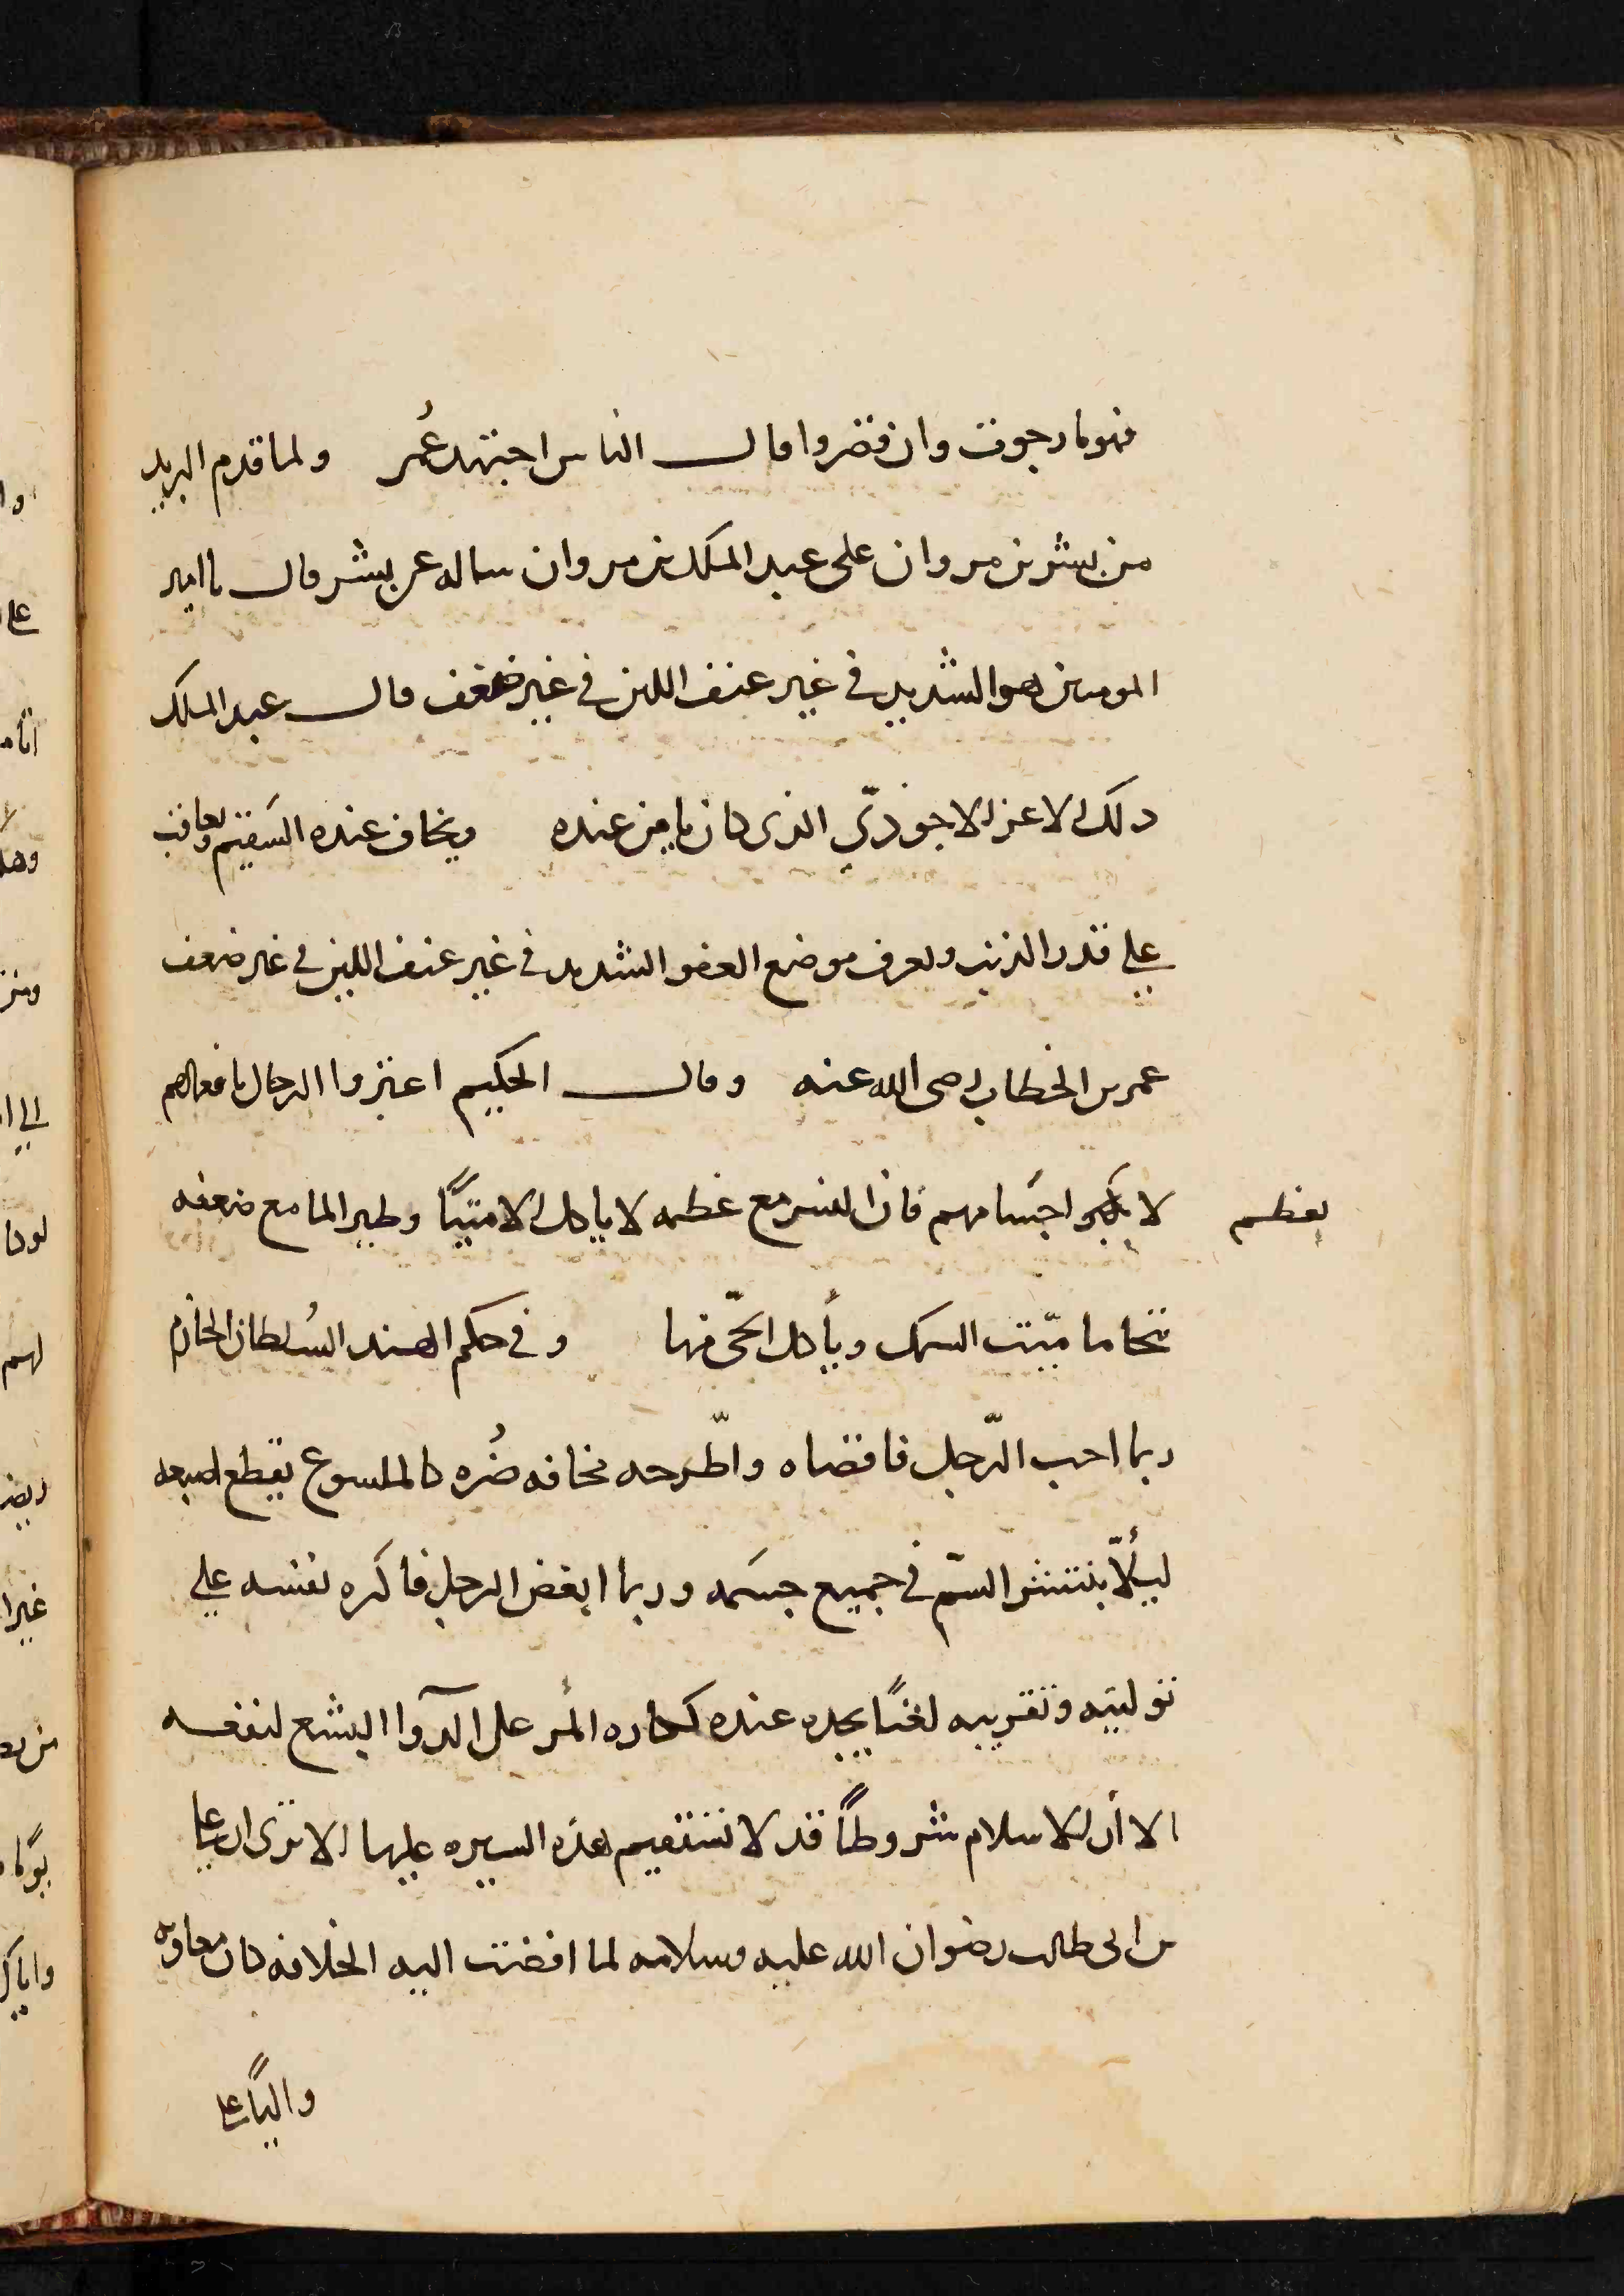 فهو ما رجوت وان قصروا قال الناس اجتهد عُمر ولما قدم البريد
من بشر بن مروان على عبد الملك بن مروان ساله عن بشر فقال يا امير
المومنين هو الشديد في غير عنف اللين في غير ضعف قال عبد الملك
ذلك الاعز الاحوذيّ الذى كان يامن عنده ويخاف عنده السقيم ويعاقب
على قدر الذنب ويعرف موضع العفو الشديد في غير عنف اللين في غير ضعف
عمر بن الخطاب رضى الله عنه وقال الحكيم اعتبروا الرجال بافعالهم
لا بكبر اجسامهم فان النسر مع عظمه لا ياكل الا ميتًا وطير الما مع ضعفه
بعظم
تتحاما ميّت السمك ويأكل الحىّ منها وفي حكم الهند السُلطان الحازم
ربما احب الرّجل فاقصاه واطّرحه مخافه ضُره كالملسوع يقطع اصبعه
ليألّا ينتشر السمّ في جميع جسمه وربما ابغض الرجل فاكره نفسه على
توليته وتقريبه لغنًا يجده عنده كتكاره المر على الدّوآ البشع لنفعه
الا أن للاسلام شروطًا قد لا تستقيم هذه السيره عليها الا ترى ان عليا
بن ابى طالب رضوان الله عليه وسلامه لما افضت اليه الخلافه كان معاويه
واليًا على